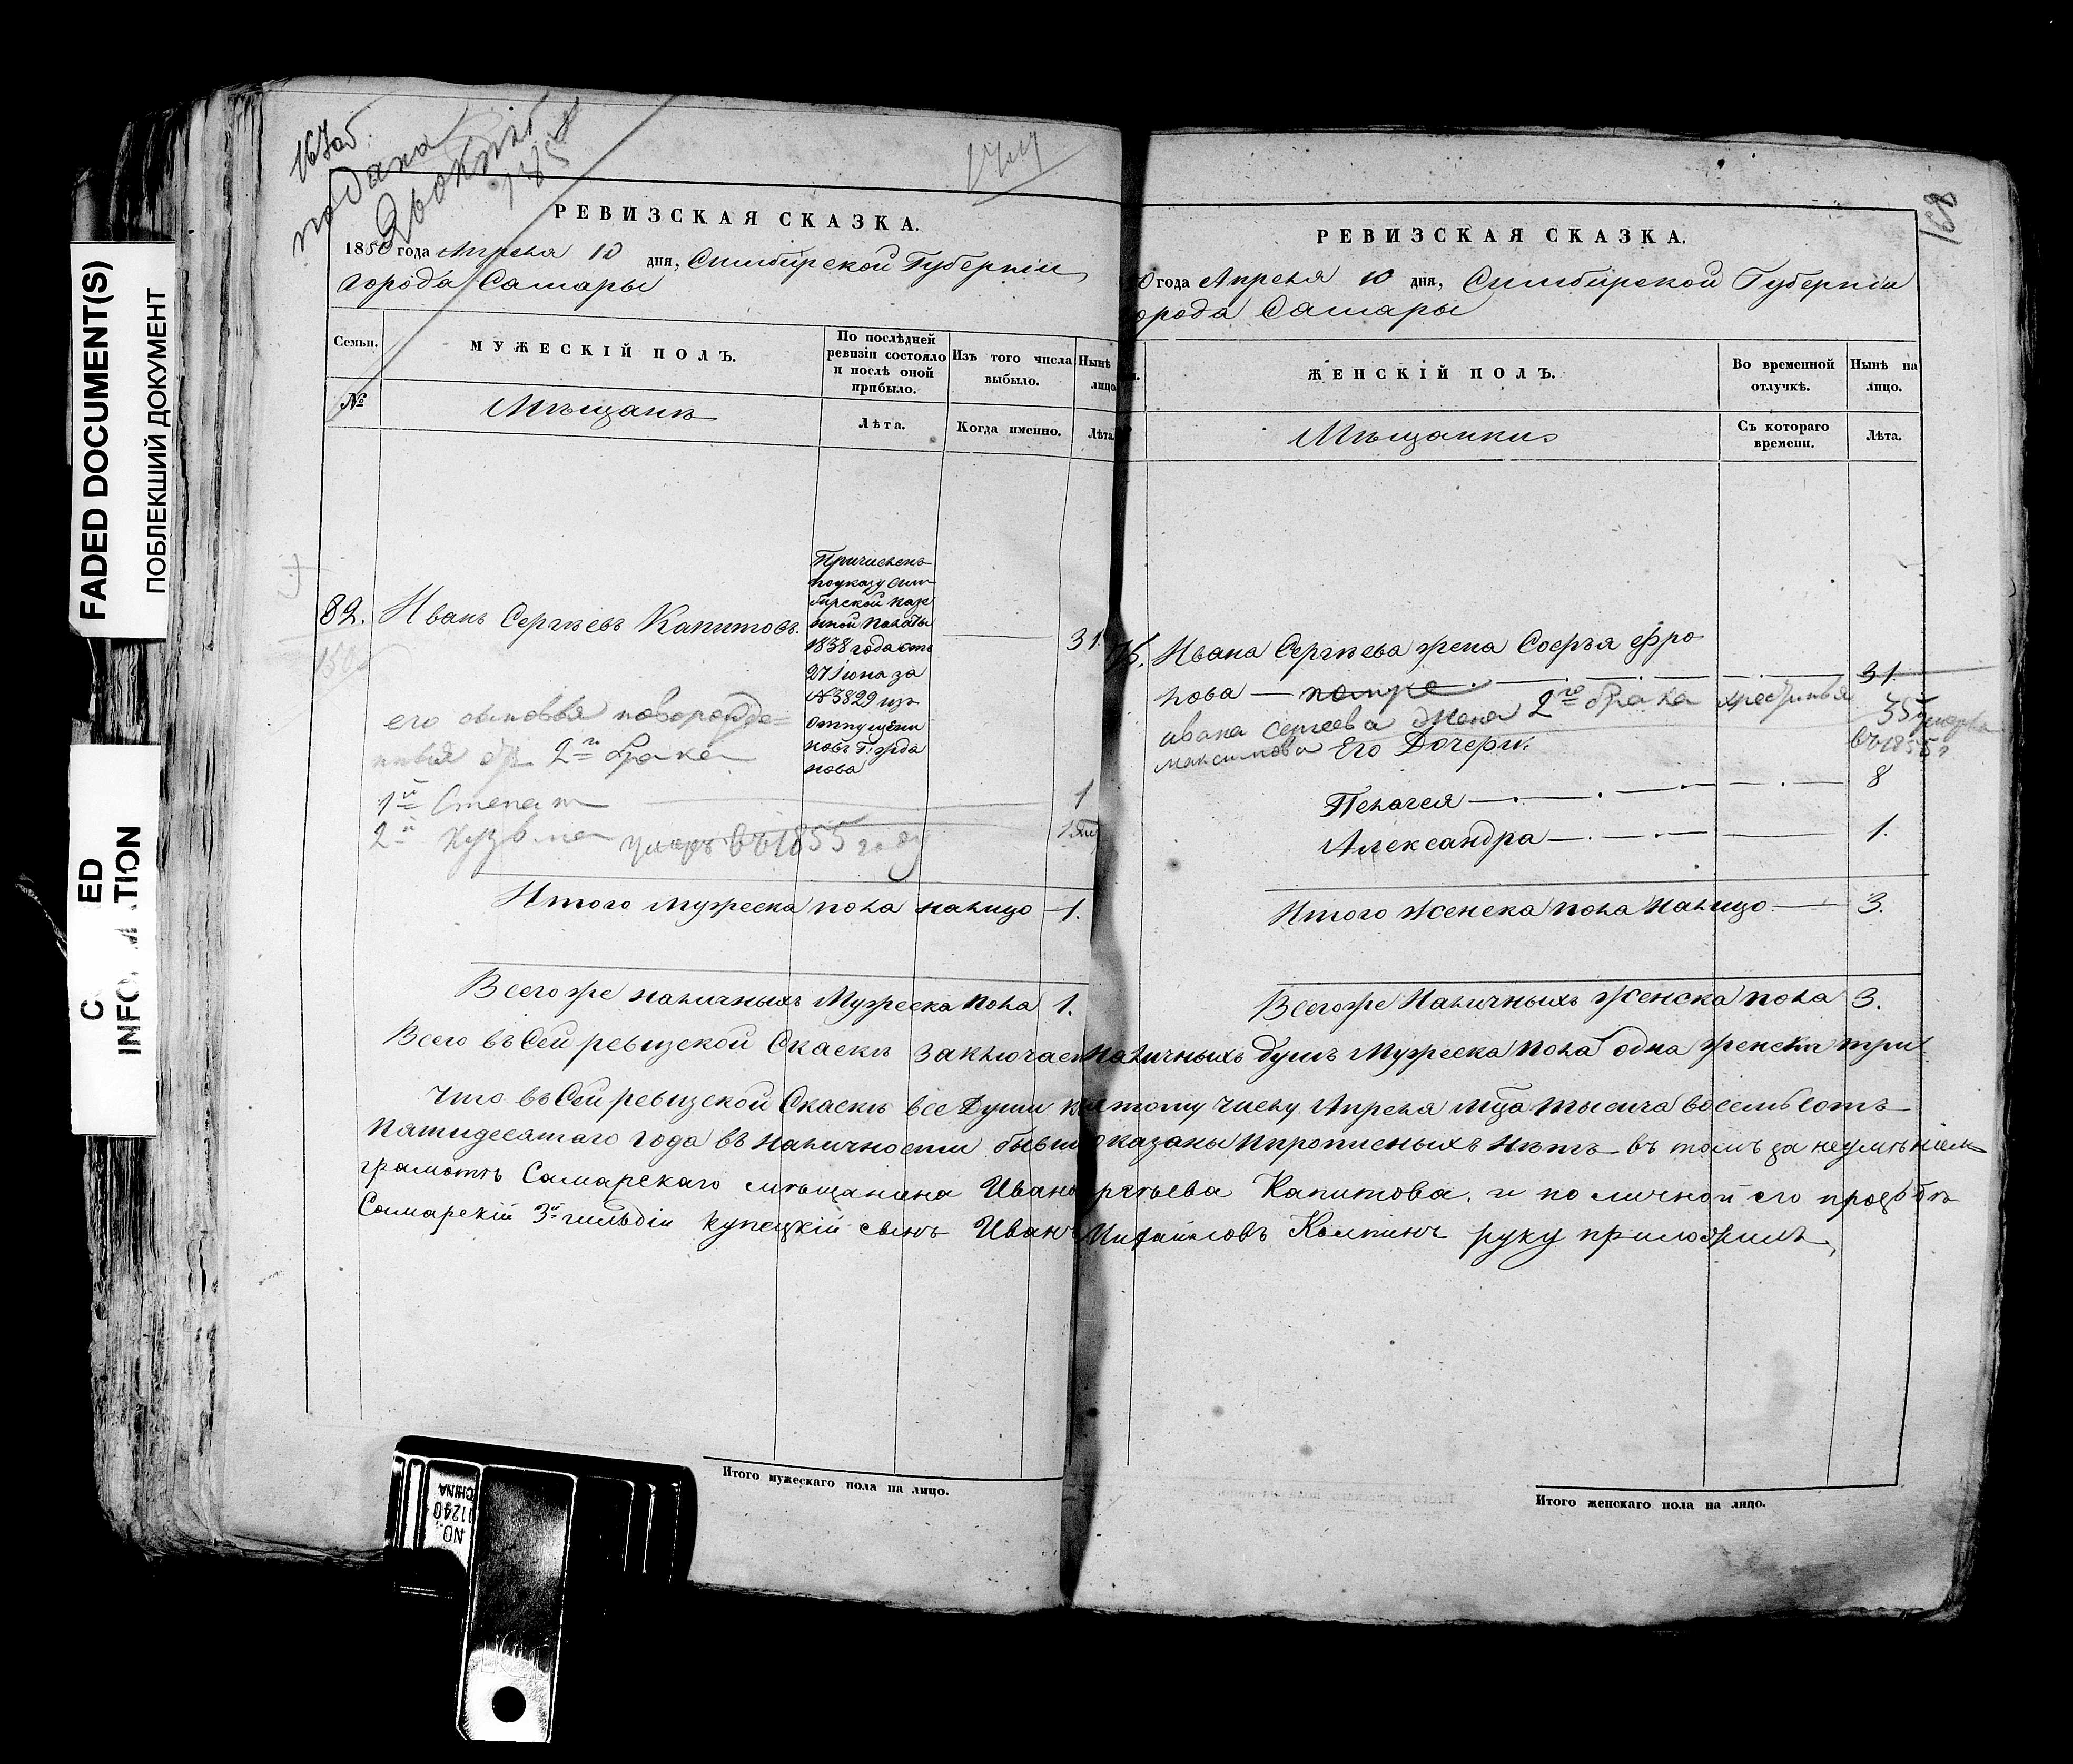 FADED DOCUMENT(S)
ПОБЛЕКШИЙ ДОКУМЕНТ
167об.
подана
РЕВИЗСКАЯ СКАЗКА.
1850 года Апреля 10 дня, Симбирской Губерніи
города Самары
Семьи.
МУЖЕСКІЙ ПОЛЪ.
По послѣдней
ревизіи состояло
и послѣ оной
прибыло.
Изъ того числа
выбыло.
Нынѣ
лицо
№
Мѣщанъ
Лѣта.
Когда именно.
Лѣта.
82.
Иванъ Сергѣевъ Капитовъ.
Причисленъ
по указу Сим
бирской Казе
нной Палаты
1838 года отъ
27 Іюня за
№ 3829 изъ
отпущени
ковъ Г. Жда
нова
31.
его сыновья новорожде=
нныя отъ 2го брака
1й Степанъ
1
2й Кузьма умеръ въ 1855 году
Итого мужеска пола налицо 1.
Всего же наличныхъ Мужеска пола 1.
168
РЕВИЗСКАЯ СКАЗКА.
0 года Апреля 10 дня, Симбирской Губерніи
орода Самары
ЖЕНСКІЙ ПОЛЪ.
Во временной
отлучкѣ.
Нынѣ на
лицо.
Мѣщанки
Съ котораго
времени.
Лѣта.
Ивана Сергѣева жена Софья Фро
лова 31
Ивана Сергеева жена 2го брака
Максимова Его Дочери:
35
въ 1855
Пелагея 8
Александра 1.
Итого Женска пола налицо 3.
Всего же Наличныхъ Женска пола 3.
Всего въ Сей ревизской Скаскѣ заключает наличныхъ душъ Мужеска пола одна женска три
Что въ Сей ревизской Скаскѣ все Души к числу Апреля Мца тысеча восемьсотъ
Пятидесятаго года въ наличности показаны и прописныхъ нѣтъ въ томъ за неумѣніем
грамотѣ Самарскаго мѣщанина Иван Капитова. и по личной его прозбѣ
Самарскій 3й гильдіи купецкій сынъ Иванъ Михайловъ руку приложилъ,
Итого мужескаго пола на лицо.
Итого женскаго пола на лицо.
NO.
11240
CHINA